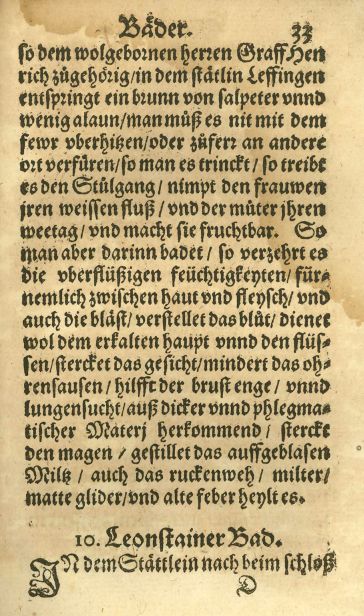 Bäder. 33
so dem wolgebornen herren Graff Hen
rich zůgehörig/in dem stätlin Leffingen
entspringt ein brunn von salpeter vnnd
wenig alaun/man můß es nit mit dem
fewr vberhitzen/oder zůferr an andere
ort verfüren/so man es trinckt/so treibt
es den Stůlgang/nimpt den frauwen
jren weissen fluß/vnd der můter jhren
weetag/vnd macht sie fruchtbar. So
man aber darinn badet/so verzehrt es
die vberflüßigen feüchtigkeyten/für-
nemlich zwischen haut vnd fleysch/vnd
auch die bläst/verstellet das blůt/dienet
wol dem erkalten haupt vnnd den flüs-
sen/stercket das gesicht/mindert das oh-
rensausen/hilfft der brust enge/vnnd
lungensucht/auß dicker vnnd phlegma-
tischer Materj herkommend/sterckt
den magen/gestillet das auffgeblasen
Miltz/auch das ruckenweh/milter/
matte glider/vnd alte feber heylt es.
10. Leonstainer Bad.
IN dem Stättlein nach beim schloß
D